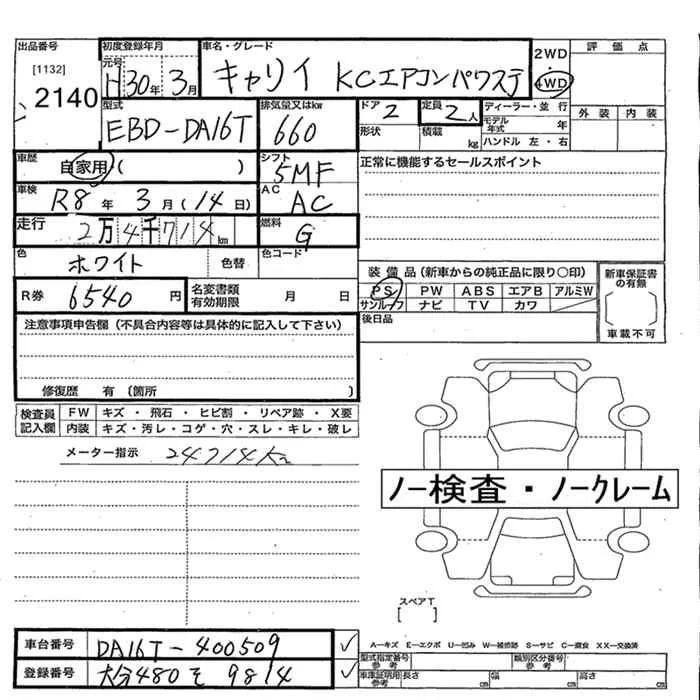 出品番号 初度登録年月 車名・グレード 2WD ・ 4WD 評価点
[1132] 元号
2140 H30年 3月 キャリイ KCエアコンパワステ
型式 排気量又はkw ドア 定員 ディーラー・並行 外装 内装
EBD-DA16T 660 2 2人 モデル年式 年
形状 積載 kg ハンドル 左・右
車歴 自家用( ) シフト 5MF 正常に機能するセールスポイント
車検 R8年 3月(14日) AC AC
走行 2万4千714km 燃料 G
色 ホワイト 色替 色コード 装備品(新車からの純正品に限り〇印) 新車保証書の有無
R券 6540円 名変書類有効期限 月 日 PS PW ABS エアB アルミW 〔 〕
サンルーフ ナビ TV カワ 車載不可
注意事項申告欄(不具合内容等は具体的に記入して下さい) 後日品
修復歴 有〔箇所 〕
検査員記入欄 FW キズ・飛石・ヒビ割・リペア跡・X要
内装 キズ・汚レ・コゲ・穴・スレ・キレ・破レ
メーター指示 24714Km
ノー検査・ノークレーム
スペアT
[ ]
車台番号 DA16T-400509 ✓ A―キズ E―エクボ U―凹み W―補修跡 S―サビ C―腐食 XX―交換済
型式指定番号 参考 類別区分番号 参考
登録番号 大分480そ9814 ✓ 車庫証明用 参考 長さ cm 幅 cm 高さ cm